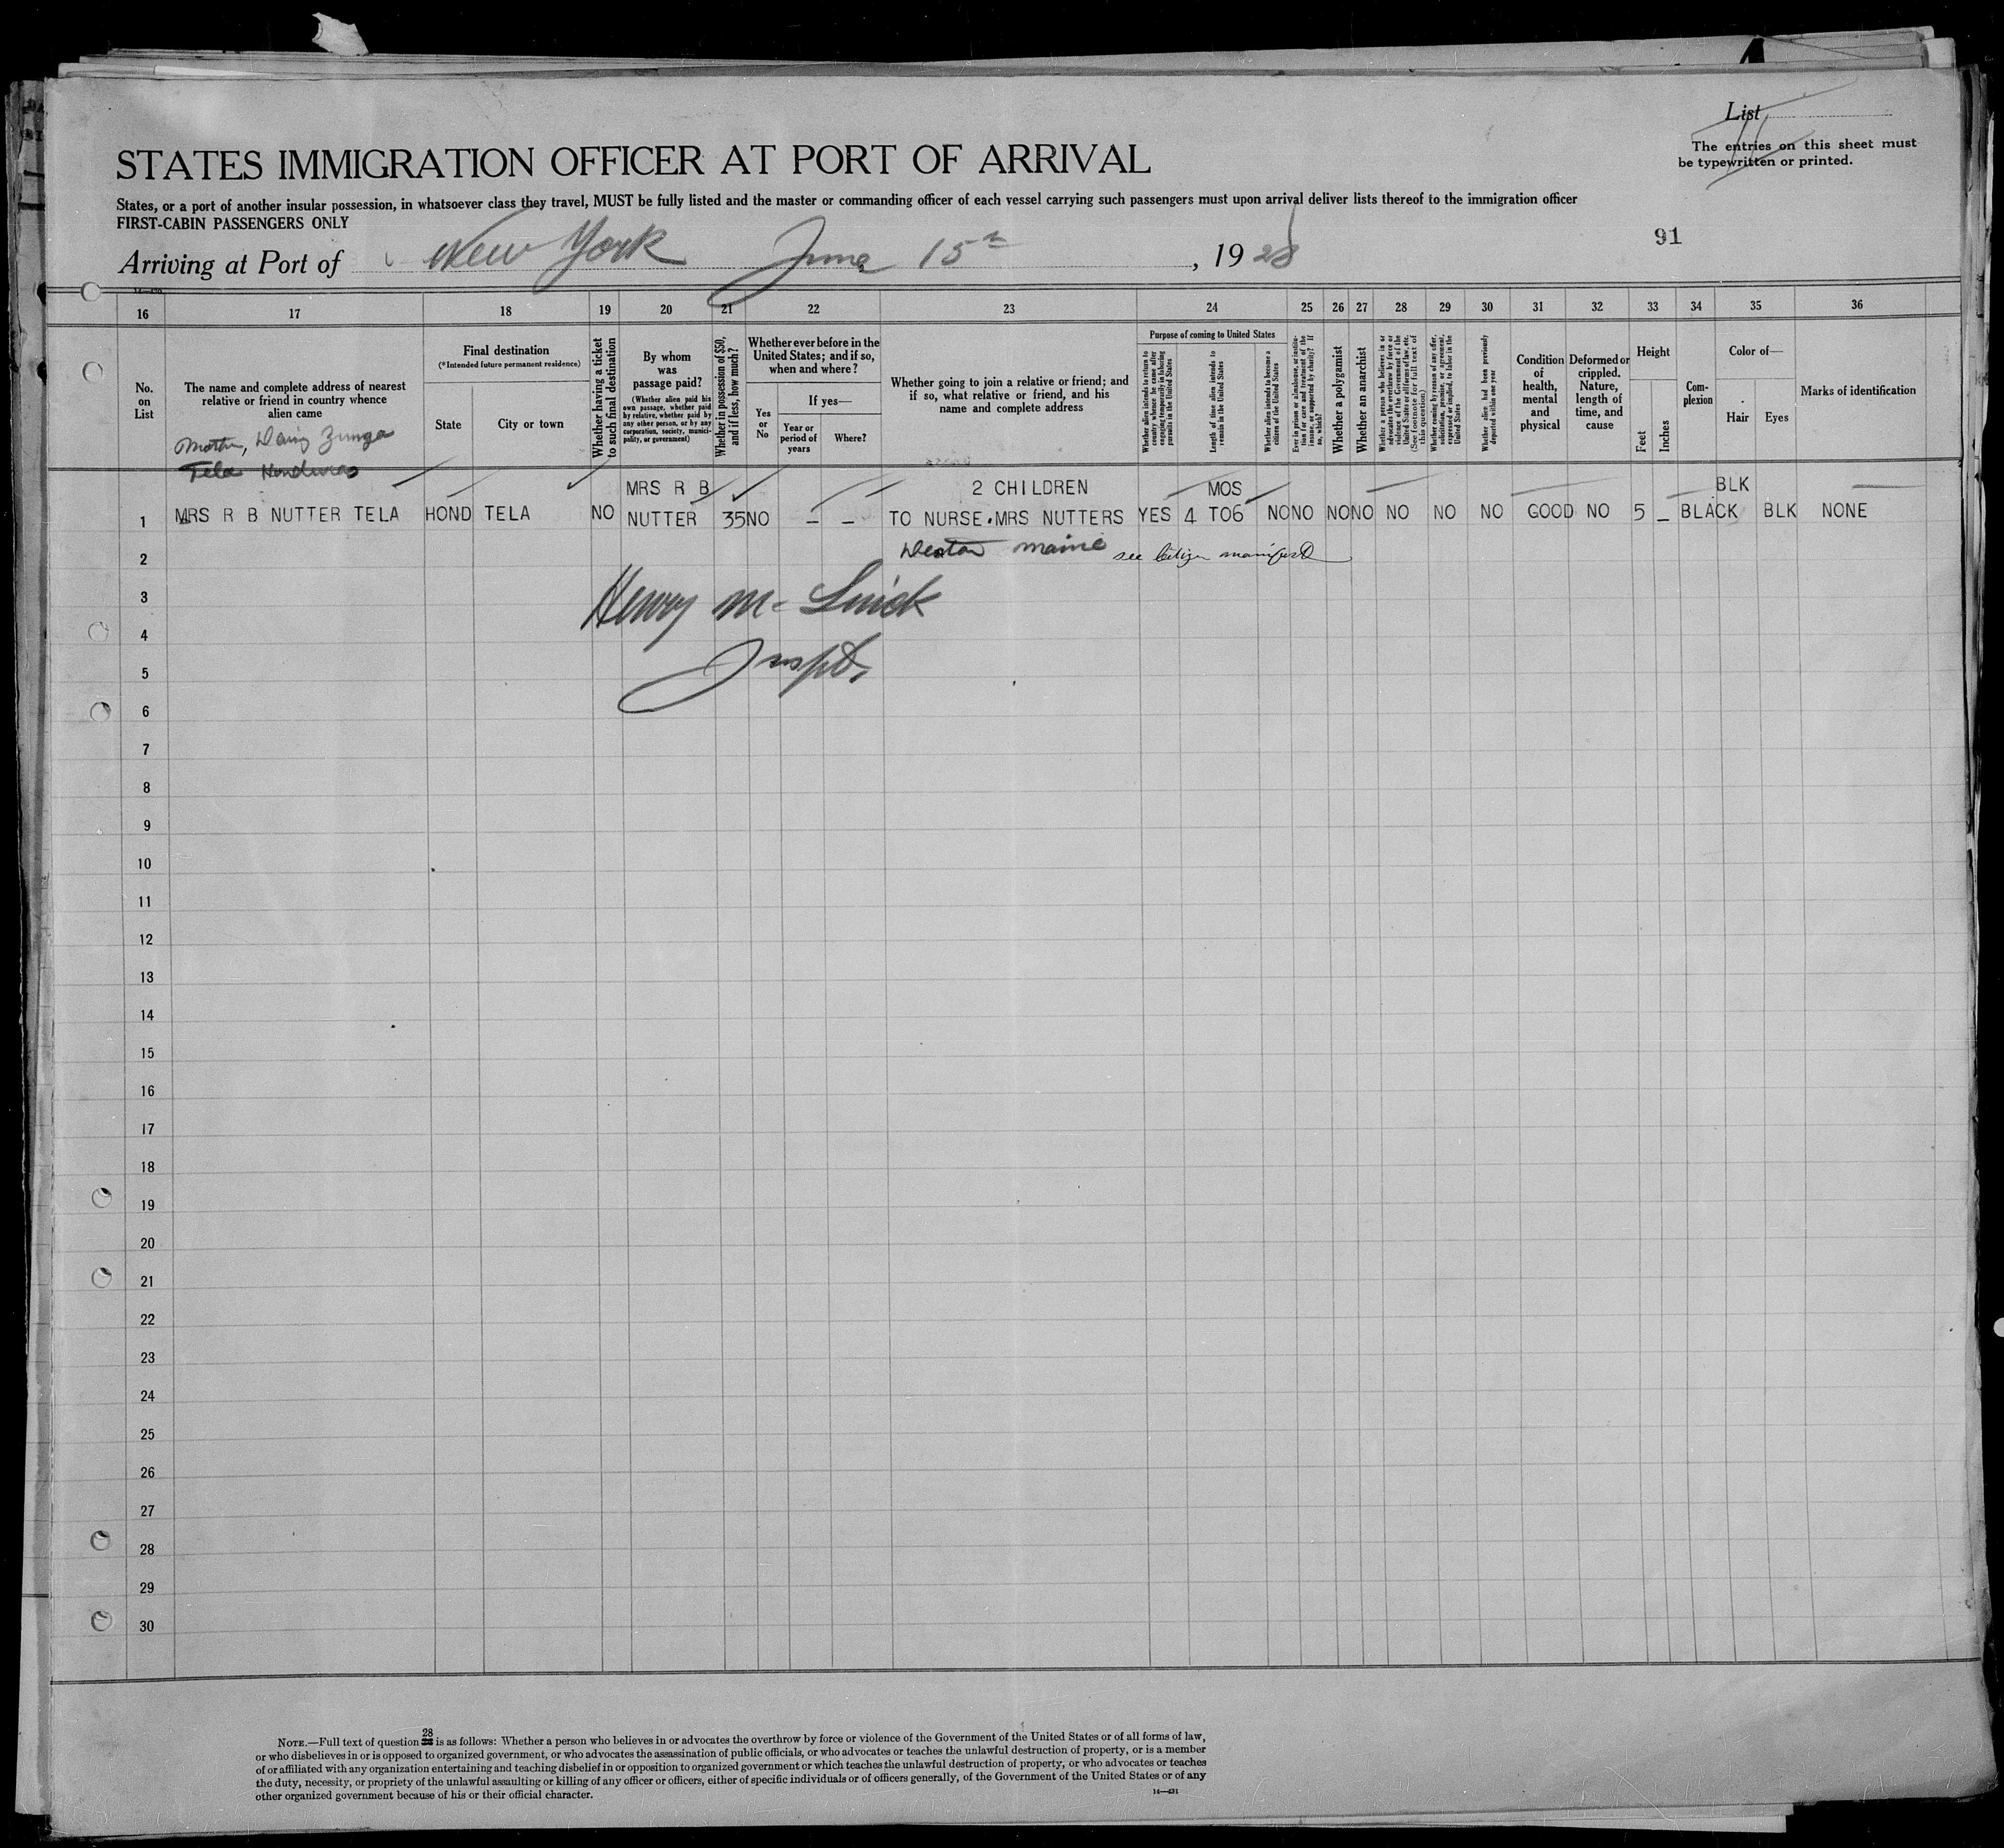 List
The entries on this sheet must
be typewritten or printed.
STATES IMMIGRATION OFFICER AT PORT OF ARRIVAL
States, or a port of another insular possession, in whatsoever class they travel, MUST be fully listed and the master or commanding officer of each vessel carrying such passengers must upon arrival deliver lists thereof to the immigration officer
FIRST-CABIN PASSENGERS ONLY
91
Arriving at Port of New York June 15th, 1928
16 17 18 19 20 21 22 23 24 25 26 27 28 29 30 31 32 33 34 35 36
No.
on
List
The name and complete address of nearest
relative or friend in country whence
alien came
Final destination
(*Intended future permanent residence)
State
City or town
Whether having a ticket
to such final destination
By whom
was
passage paid?
(Whether alien paid his
own passage, whether paid
by relative, whether paid by
any other person, or by any
corporation, society, munici-
pality, or government)
Whether in possession of $50,
and if less, how much?
Whether ever before in the
United States; and if so,
when and where?
Yes
or
No
If yes—
Year or
period of
years
Where?
Whether going to join a relative or friend; and
if so, what relative or friend, and his
name and complete address
Purpose of coming to United States
Whether alien intends to return to
country whence he came after
engaging temporarily in laboring
pursuits in the United States
Length of time alien intends to
remain in the United States
Whether alien intends to become a
citizen of the United States
Ever in prison or almshouse, or institu-
tion for care and treatment of the
insane, or supported by charity? If
so, which?
Whether a polygamist
Whether an anarchist
Whether a person who believes in or
advocates the overthrow by force or
violence of the Government of the
United States or all forms of law, etc.
(See footnote for full text of
this question)
Whether coming by reason of any offer,
solicitation, promise, or agreement,
expressed or implied, to labor in the
United States
Whether alien had been previously
deported within one year
Condition
of
health,
mental
and
physical
Deformed or
crippled.
Nature,
length of
time, and
cause
Height
Feet
Inches
Com-
plexion
Color of—
Hair
Eyes
Marks of identification
Mother, Zunga
Tela Honduras
MRS R B 2 CHILDREN MOS BLK
1 MRS R B NUTTER TELA HOND TELA NO NUTTER 35 NO – – TO NURSE.MRS NUTTERS YES 4 TO6 NO NO NO NO NO NO NO GOOD NO 5 – BLACK BLK NONE
2 Maine see manifest
3 Henry
4
5 Inspt.
6
7
8
9
10
11
12
13
14
15
16
17
18
19
20
21
22
23
24
25
26
27
28
29
30
28
NOTE.—Full text of question is as follows: Whether a person who believes in or advocates the overthrow by force or violence of the Government of the United States or of all forms of law,
or who disbelieves in or is opposed to organized government, or who advocates the assassination of public officials, or who advocates or teaches the unlawful destruction of property, or is a member
of or affiliated with any organization entertaining and teaching disbelief in or opposition to organized government or which teaches the unlawful destruction of property, or who advocates or teaches
the duty, necessity, or propriety of the unlawful assaulting or killing of any officer or officers, either of specific individuals or of officers generally, of the Government of the United States or of any
other organized government because of his or their official character.
14—431